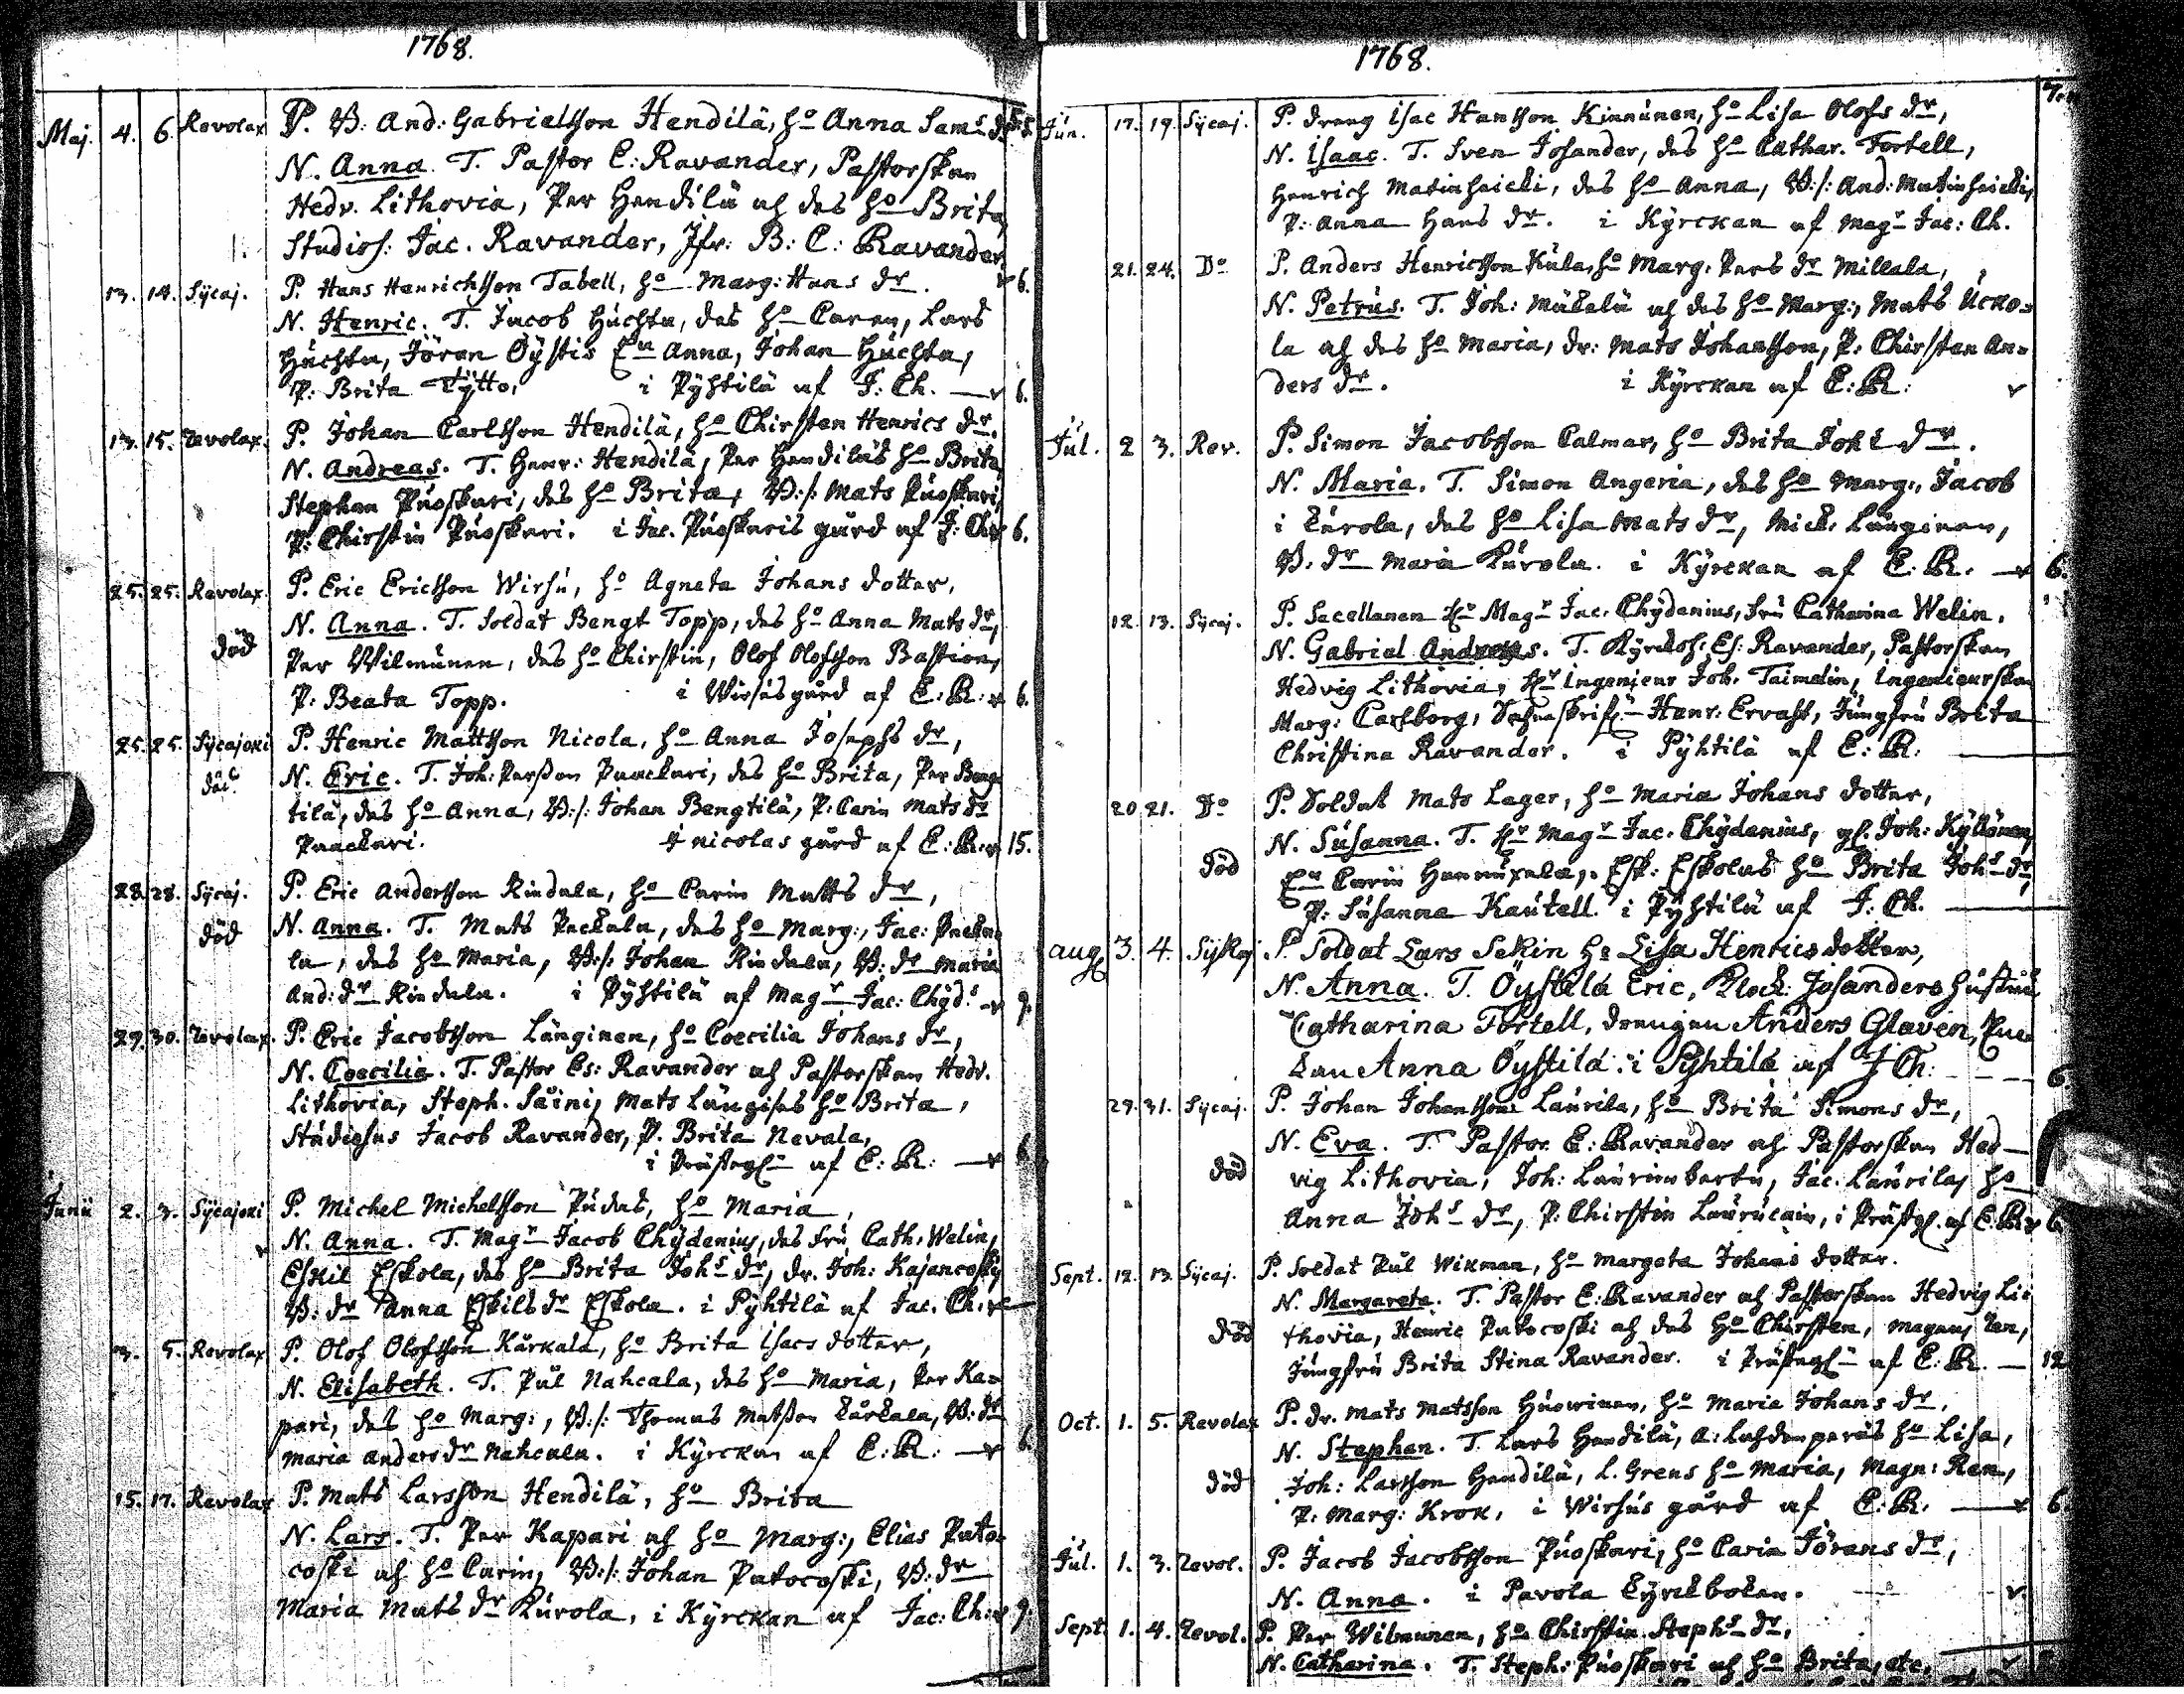 1768.
Maj. 4. 6. Revolax P. B: And: Gabrielsson Hendilä, ho Anna Sams dr
N. Anna. T. Pastor E: Ravander, Pastorskan
Hedv. Lithovia, Per Hendilä och des ho Brita,
Studios: Jac. Ravander, Jfr: B: C: Ravander
13. 14. Sÿcaj. P. Hans Henrichsson Tabell, ho Marg: Hans dr. 6.
N. Henric. T. Jacob Huchta, des ho Caren, Lars
Huchta, Jöran Öÿstis En Anna, Johan Huchta,
P: Brita Tÿtto, i Pÿhtilä af J: Ch. 6.
13. 15. Revolax. P. Johan Carlsson Hendilä, ho Chirsten Henrics dr.
N. Andreas. T. Henr: Hendilä, Per Hendiläs ho Brita,
Stephan Puoskari, des ho Brita, B:/: Mats Puoskari,
P: Chirstin Puoskari. i Jac. Puoskaris gård af J: Ch. 6.
25. 25. Revolax. P. Eric Ericsson Wirsu, ho Agneta Johans dotter,
N. Anna. T. Soldat Bengt Topp, des ho Anna Mats dr,
död Per Wilmunen, des ho Chirstin, Olof Olofsson Bastion,
P: Beata Topp. i Wirsus gård af E: R: 6.
25. 25. Sÿcajoki P. Henric Mattsson Nicola, ho Anna Josephs dr,
död N. Eric. T. Joh: Persson Paackari, des ho Brita, Per Beng-
tilä, des ho Anna, B:/: Johan Bengtilä, P: Carin Mats dr
Paackari. i Nicolas gård af E: R. 15.
28. 28. Sÿcaj. P. Eric Andersson Rindala, ho Carin Matts dr,
död N. Anna. T. Mats Packala, des ho Marg:, Jac: Packa-
la, des ho Maria, B:/: Johan Rindala, B: dr Maria
And: dr Rindala. i Pÿhtilä af Magr Jac: Chÿds 9.
29. 30. Revolax. P. Eric Jacobsson Länginen, ho Coecilia Johans dr,
N. Coecilia. T. Pastor Es: Ravander och Pastorskan Hedv.
Lithovia, Steph. Säini, Mats Längises ho Brita,
Studiosus Jacob Ravander, P. Brita Nevala,
i Prästg: af E: R: 6.
Junii 2. 3. Sÿcajoki P. Michel Michelsson Pudas, ho Maria,
N. Anna. T. Magr Jacob Chÿdenius, des fru Cath: Welin,
Eskil Eskola, des ho Brita Johs dr, dr. Joh: Kajancoski
B: dr Anna Eskils dr Eskola. i Pÿhtilä af Jac. Ch:
3. 5. Revolax P. Olof Olofsson Kärkälä, ho Brita Isacs dotter,
N. Elisabeth. T. Pål Nahcala, des ho Maria, Per Ka-
pari, des ho Marg:, B:/: Thomas Matsson Kärkälä, B: dr
Maria Anders dr Nahcala. i Kÿrckan af E: R: 6.
15. 17. Revolax P. Mats Larsson Hendilä, ho Brita
N. Lars. T. Per Kapari och ho Marg:, Elias Pato-
coski och ho Carin, B:/: Johan Patocoski, B: dr
Maria Mats dr Kurola, i Kÿrckan af Jac: Ch: 9.
1768.
Jun. 17. 19. Sÿcaj. P. dreng Isac Hansson Kinnunen, ho Lisa Olofs dr,
N. Isaac. T. Sven Josander, des ho Cathar. Fortell,
Henrich Matinheicki, des ho Anna, B:/: And: Matinheicki,
P: Anna Hans dr. i Kÿrckan af Magr Jac: Ch.
21. 24. Do P. Anders Henricsson Kula, ho Marg: Pers dr Millala,
N. Petrus. T. Joh: Mäkelä och des ho Marg:, Mats Ucko-
la och des ho Maria, dr: Mats Johansson, P. Chirstan An-
ders dr. i Kÿrckan af E: R:
Jul. 2 3. Rev. P. Simon Jacobsson Calmar, ho Brita Johs dr.
N. Maria. T. Simon Angeria, des ho Marg:, Jacob
i Kurola, des ho Lisa Mats dr, Mick: Länginen,
B. dr Maria Kurola. i Kÿrckan af E. R. 6.
12. 13. Sÿcaj. P. Sacellanen Hr Magr Jac. Chÿdenius, fru Catharina Welin,
N. Gabriel Andreas. T. Kÿrckoh: Es: Ravander, Pastorskan
Hedvig Lithovia, Hr Ingenieur Joh. Taimelin, Ingenieurskan
Marg: Carlborg, Henr: Ervast, Jungfru Brita
Christina Ravander. i Pÿhtilä af E: R:
20 21. Do P. Soldat Mats Lager, ho Maria Johans dotter,
N. Susanna. T. Hr Magr Jac. Chÿdenius, Joh: Kÿllönen,
död En Carin Hannuxela, Esk: Eskolas ho Brita Johs dr,
P: Susanna Kautell i Pÿhtilä af J. Ch.
Aug. 3. 4. Sÿkaj P. Soldat Lars Sekin ho Lisa Henrics dotter,
N. Anna. T. Öystilä Eric, Klock: Josanders hustru
Catharina Förtell, drengen Anders Glaven,
kan Anna Öystilä. i Pyhtilä af J Ch: 6
29. 31. Sÿcaj. P. Johan Johansson Laurila, ho Brita Simons dr,
N. Eva. T. Pastor E: Ravander och Pastorskan Hed-
död vig Lithovia, Joh: Laurinbartu, Jac. Laurilas ho
Anna Johs dr, P. Chirstin Laurucain, i Prästg. af E: R 6
Sept. 12. 13. Sÿcaj. P. Soldat Pål Wikman, ho Margeta Johans dotter.
N. Margareta. T. Pastor E: Ravander och Pastorskan Hedvig Li-
död thovia, Henric Patocoski och des ho Chirsten, Magnus Ren,
Jungfru Brita Stina Ravander. i Prästg: af E: R. 12
Oct. 1. 5. Revolax P. Dr. Mats Matsson Huowinen, ho Maria Johans dr,
N. Stephan. T. Lars Hendilä, A: Lahdenperäs ho Lisa,
död Joh: Larsson Hendilä, L. Grens ho Maria, Magn: Ren,
P. Marg: Krok, i Wirsus gård af E: R. 6
Jul. 1. 3. Revol. P. Jacob Jacobsson Puoskari, ho Carin Jörans dr,
N. Anna. i Pavola Kÿrckboken.
Sept. 1. 4. Revol. P. Per Wilmunen, ho Chirstin Stephs dr,
N. Catharina. T. Steph: Puoskari och ho Brita, etc.